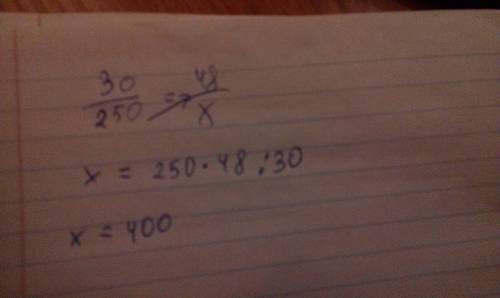 30/250 => 48/x
x = 250 · 48 : 30
x = 400